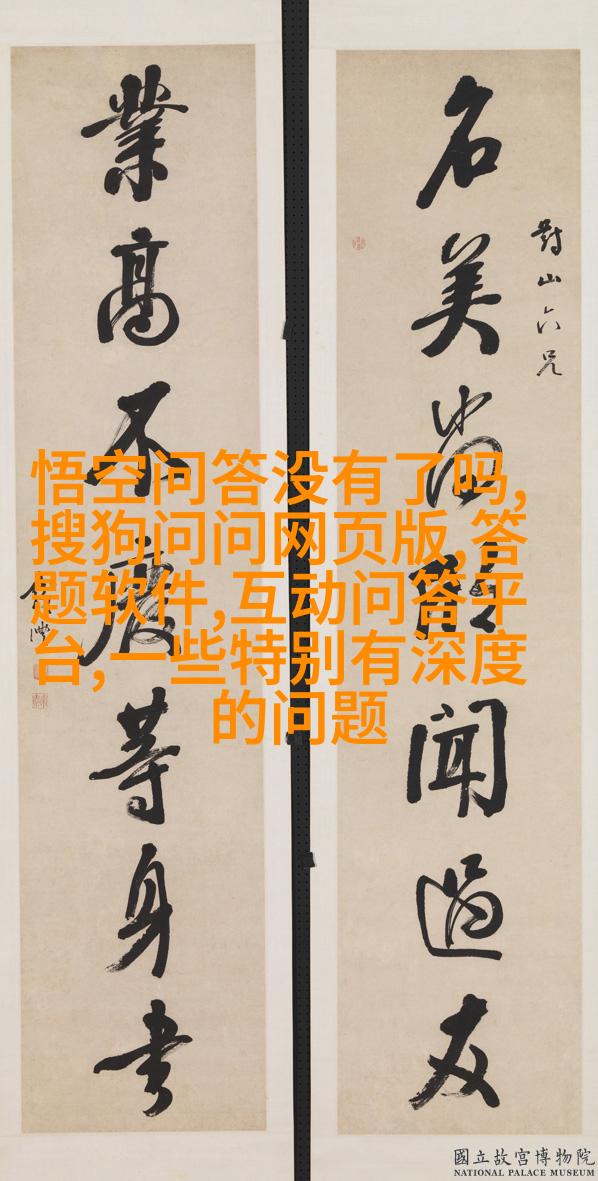 名美尚聞過友
對山六兄
業高不廢等身書
悟空问答没有了吗,
搜狗问问网页版,答
题软件,互动问答平
台,一些特别有深度
的问题
國立故宮博物院
NATIONAL PALACE MUSEUM